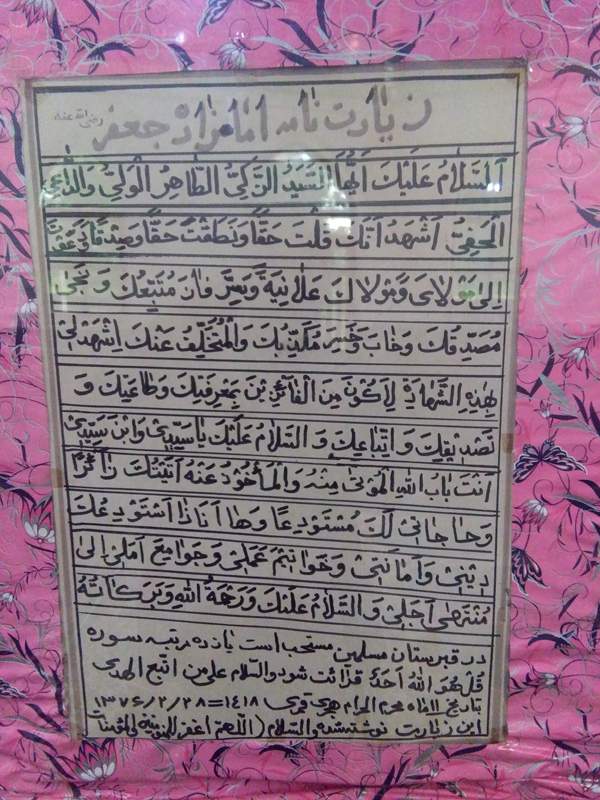 زیارت نامه امامزاده جعفر رضی الله عنه
اَلسَّلامُ عَلَيْكَ اَيُّهَا السَّيِّدُ الزَّكِيُّ الطّاهِرُ الْوَلِيُّ وَالدّاعِي
الْحَفِيُّ اَشْهَدُ اَنَّكَ قُلْتَ حَقًّا وَنَطَقْتَ حَقًّا وَصِدْقًا دَعَوْتَ
اِلىٰ مَوْلايَ وَمَوْلاكَ عَلانِيَةً وَسِرًّا فازَ مُتَّبِعُكَ وَ نَجىٰ
مُصَدِّقُكَ وَخابَ وَخَسِرَ مُكَذِّبُكَ وَالْمُتَخَلِّفُ عَنْكَ اِشْهَدْ لي
بِهٰذِهِ الشَّهادَةِ لِاَكُونَ مِنَ الْفائِزينَ بِمَعْرِفَتِكَ وَطاعَتِكَ وَ
تَصْديقِكَ وَ اتِّباعِكَ وَ السَّلامُ عَلَيْكَ يا سَيِّدي وَابْنَ سَيِّدي
اَنْتَ بابُ اللهِ الْمُؤْتىٰ مِنْهُ وَالْمَأْخُوذُ عَنْهُ اَتَيْتُكَ زائِرًا
وَحاجاتي لَكَ مُسْتَوْدِعًا وَها اَنَا ذا اَسْتَوْدِعُكَ
ديني وَاَمانَتي وَخَواتيمَ عَمَلي وَجَوامِعَ اَمَلي اِلىٰ
مُنْتَهىٰ اَجَلي وَالسَّلامُ عَلَيْكَ وَرَحْمَةُ اللهِ وَبَرَكاتُهُ
در قبرستان مسلمین مستحب است یازده مرتبه سوره
قُلْ هُوَ اللهُ اَحَدٌ قرائت شود والسلام علی من اتبع الهدی
بتاریخ ۱۱ ماه محرم الحرام هجری قمری ۱۴۱۸=۱۳۷۶/۲/۲۸
این زیارت نوشته شد والسلام (اللهم اغفر للمؤمنین والمؤمنات